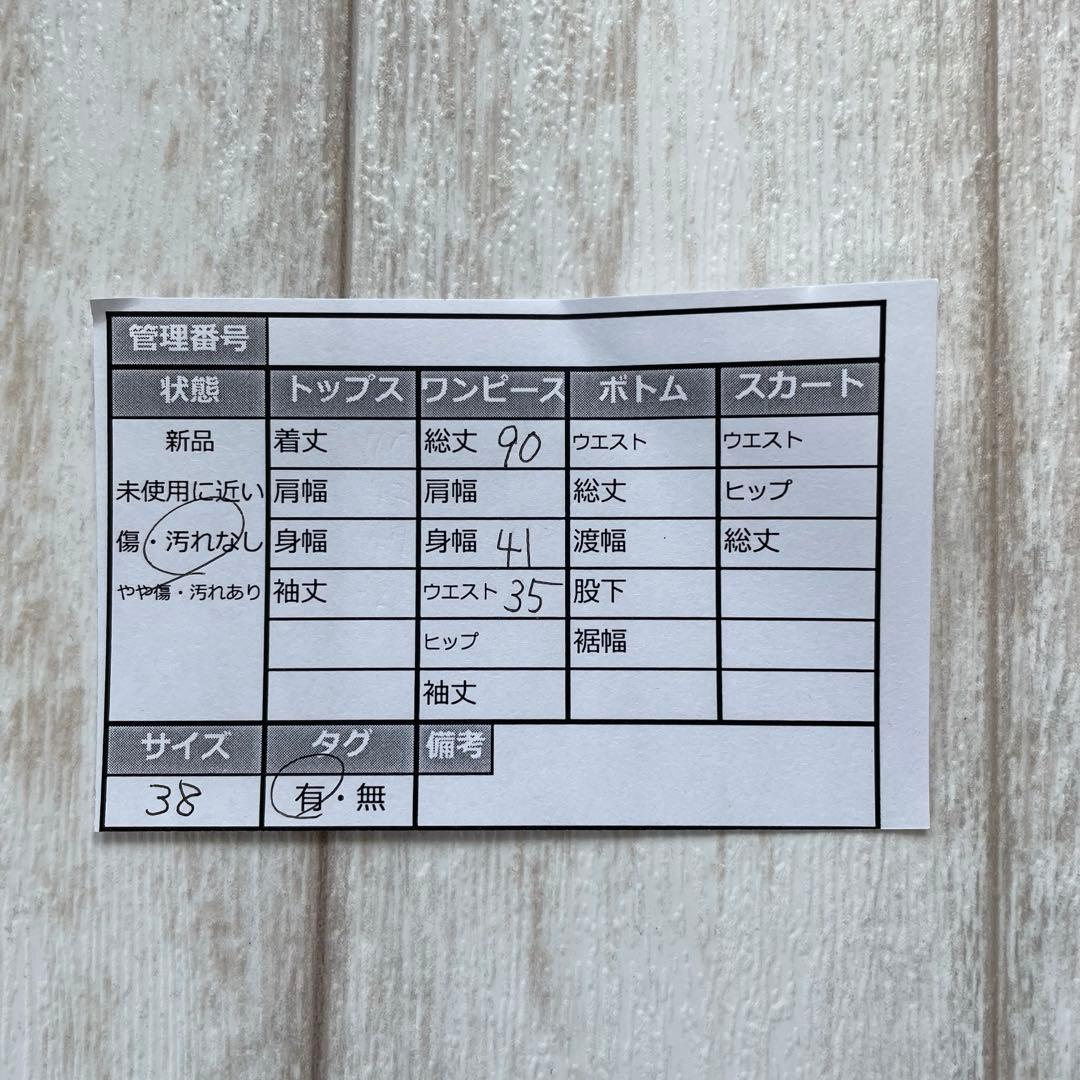 管理番号
状態 トップス ワンピース ボトム スカート
新品 着丈 総丈 90 ウエスト ウエスト
未使用に近い 肩幅 肩幅 総丈 ヒップ
傷・汚れなし 身幅 身幅 41 渡幅 総丈
やや傷・汚れあり 袖丈 ウエスト 35 股下
ヒップ 裾幅
袖丈
サイズ タグ 備考
38 有・無